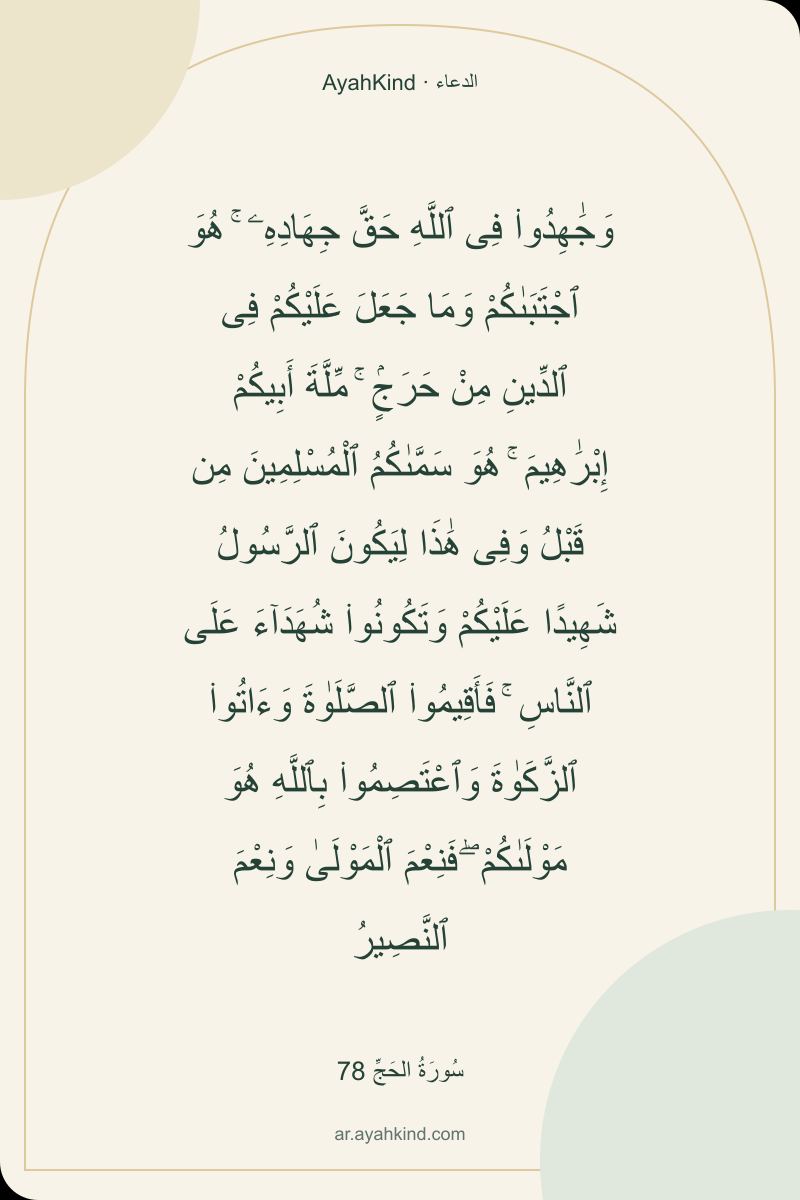 AyahKind · الدعاء
وَجَٰهِدُوا۟ فِى ٱللَّهِ حَقَّ جِهَادِهِۦ ۚ هُوَ
ٱجْتَبَىٰكُمْ وَمَا جَعَلَ عَلَيْكُمْ فِى
ٱلدِّينِ مِنْ حَرَجٍۢ ۚ مِّلَّةَ أَبِيكُمْ
إِبْرَٰهِيمَ ۚ هُوَ سَمَّىٰكُمُ ٱلْمُسْلِمِينَ مِن
قَبْلُ وَفِى هَٰذَا لِيَكُونَ ٱلرَّسُولُ
شَهِيدًا عَلَيْكُمْ وَتَكُونُوا۟ شُهَدَآءَ عَلَى
ٱلنَّاسِ ۚ فَأَقِيمُوا۟ ٱلصَّلَوٰةَ وَءَاتُوا۟
ٱلزَّكَوٰةَ وَٱعْتَصِمُوا۟ بِٱللَّهِ هُوَ
مَوْلَىٰكُمْ ۖ فَنِعْمَ ٱلْمَوْلَىٰ وَنِعْمَ
ٱلنَّصِيرُ
سُورَةُ الحَجِّ 78
ar.ayahkind.com